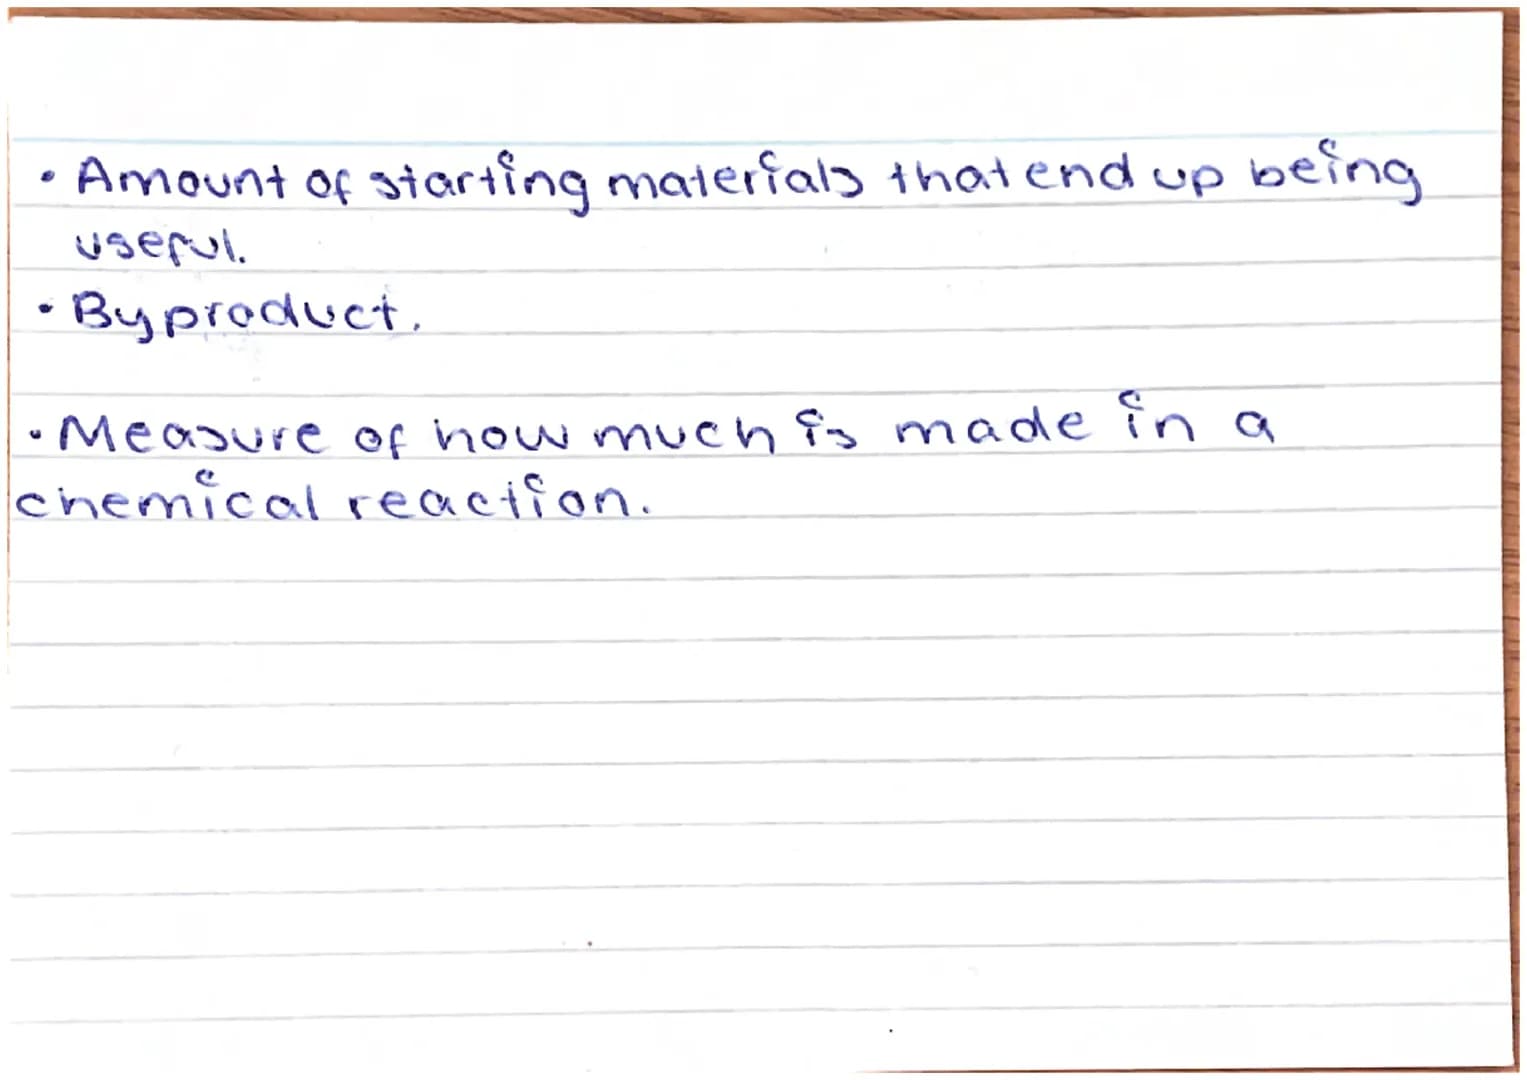 • Amount of starting materials that end up being
useful.
• Byproduct.
• Measure of how much is made in a
chemical reaction.